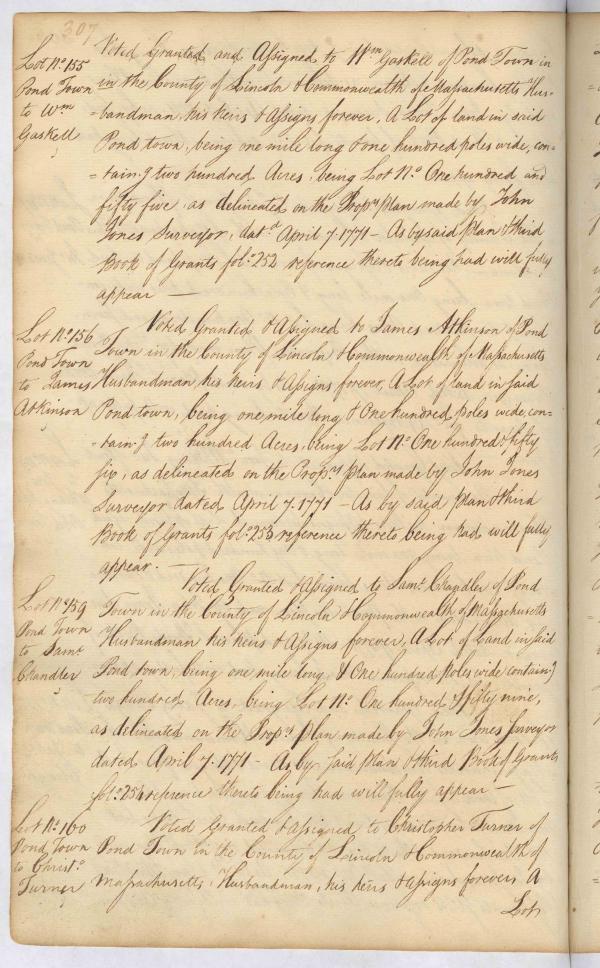 307
Lot No. 155
Pond Town
to Wm
Gaskell
Voted Granted and Assigned to Wm Gaskell of Pond Town in
in the County of Lincoln & Commonwealth of Massachusetts Hus-
-bandman, his heirs & Assigns forever, A Lot of land in said
Pond town, being one mile long & one hundred poles wide, con-
-taing two hundred Acres, being Lot No. One hundred and
fifty five, as delineated on the Proprs plan made by John
Jones Surveyor, datd April 7. 1771 - As by said plan & third
Book of Grants folo 252 reference thereto being had will fully
appear —
Lot No. 156
Pond Town
to James
Atkinson
Voted Granted & Assigned to James Atkinson of Pond
Town in the County of Lincoln & Commonwealth of Massachusetts
Husbandman, his heirs & Assigns forever, A Lot of land in said
Pond town, being one mile long & One hundred poles wide, con-
-taing two hundred Acres, being Lot No. One hundred & fifty
six, as delineated on the Proprs plan made by John Jones
Surveyor dated April 7. 1771 - As by said plan & third
Book of Grants folo 253 reference thereto being had will fully
appear. —
Lot No. 159
Pond Town
to Saml
Chandler
Voted Granted & Assigned to Saml Chandler of Pond
Town in the County of Lincoln & Commonwealth of Massachusetts
Husbandman his heirs & Assigns forever, A Lot of Land in said
Pond town, being one mile long & One hundred Poles wide containg
two hundred Acres, being Lot No. One hundred & fifty nine,
as delineated on the Proprs plan made by John Jones Surveyor
dated April 7. 1771 - As by said plan & third Book of Grants
folo 254 reference thereto being had will fully appear —
Lot No. 160
Pond Town
to Christo
Turner
Voted Granted & Assigned to Christopher Turner of
Pond Town in the County of Lincoln & Commonwealth of
Massachusetts, Husbandman, his heirs & Assigns forever, A
Lot